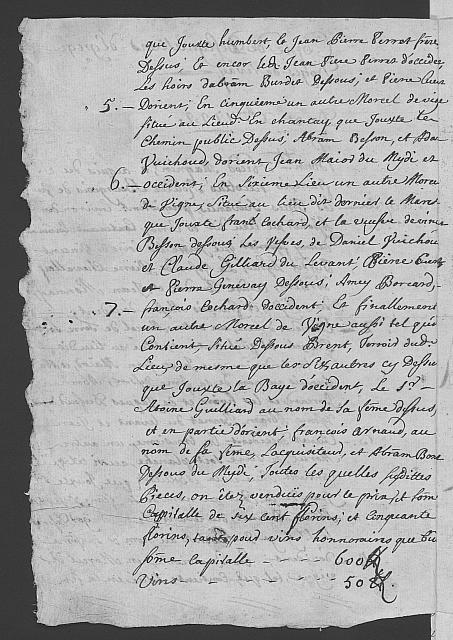 que Jouxte humbert, le Jean Pierre Perret frere
Dessus; Et encor led. Jean Piere Perret d'occident
Les hoirs d'abram Burdet Dessous; et Piere
5. — Dorient; En cinquieme un autre Morcel de vigne
situé au Lieud. En chantey, que Jouxte Le
Chemin public Dessus; Abram Besson, et
Vuichoud, dorient Jean Maior du Mydi et
6. — occident; En Sixieme Lieu un autre Morcel
de Vigne, situé au lieu dit dernier le Mares
que Jouxte franc. Cochard, et la veufve de
Besson dessous Les de Daniel Vuichou
et Claude Gilliard du Levant, Pierre
et Pierre Genevay Dessous; Amey Borcard,
7. — françois Cochard, d'occident; Et finallement
un autre Morcel de Vigne aussi tel qu'il
Contient, Situé Dessous Brent, Terroir dud.
Lieu de mesme que les Six autres cy Dessus
que Jouxte la Baye d'occident, Le Sr.
Antoine Guilliard au nom de sa feme dessus,
et en partie dorient, françois Arnaud, au
nom de sa feme, Lacquisiteur, et Abram Bone
Dessous du Mydi; Toutes les quelles susdittes
Pieces, on étez venduës pour le prix, et som
Capitalle de six cent florins; et Cinquante
florins, tant pour vins honnoraires que
sôme Capitalle — — — 600 ff
Vins — — — 50 ff.